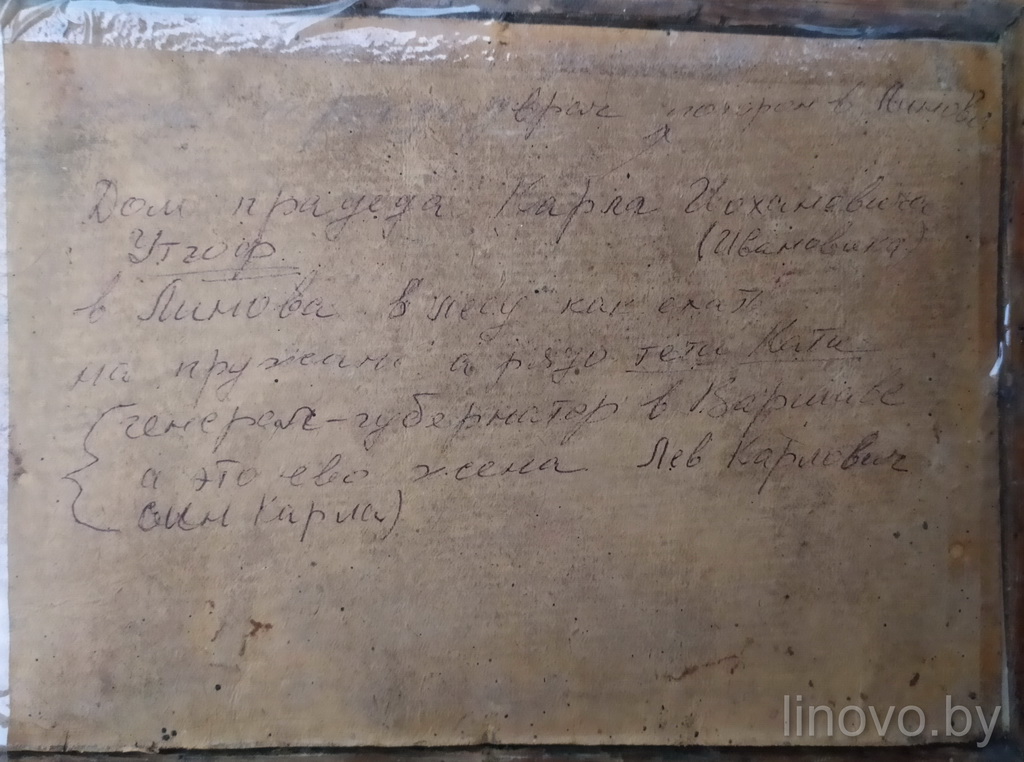 врач похорон в Линови
Дом прадеда Карла Йохановича
Утгоф (Ивановича)
в Линова в лесу как ехат
на пружани а рядо тети Кати
(генерал-губернатор в Варшаве
а это ево жена Лев Карлович
син Карла)
linovo.by